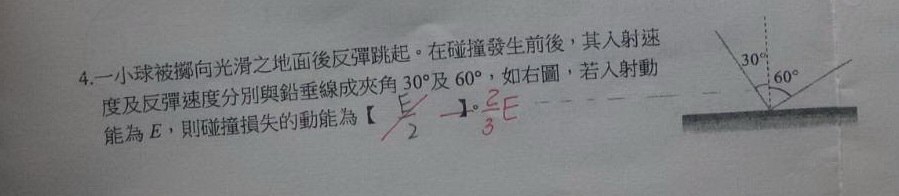 4.一小球被擲向光滑之地面後反彈跳起。在碰撞發生前後，其入射速
度及反彈速度分別與鉛垂線成夾角30°及60°，如右圖，若入射動
能為E，則碰撞損失的動能為【 E/2 】。2/3 E
30°
60°